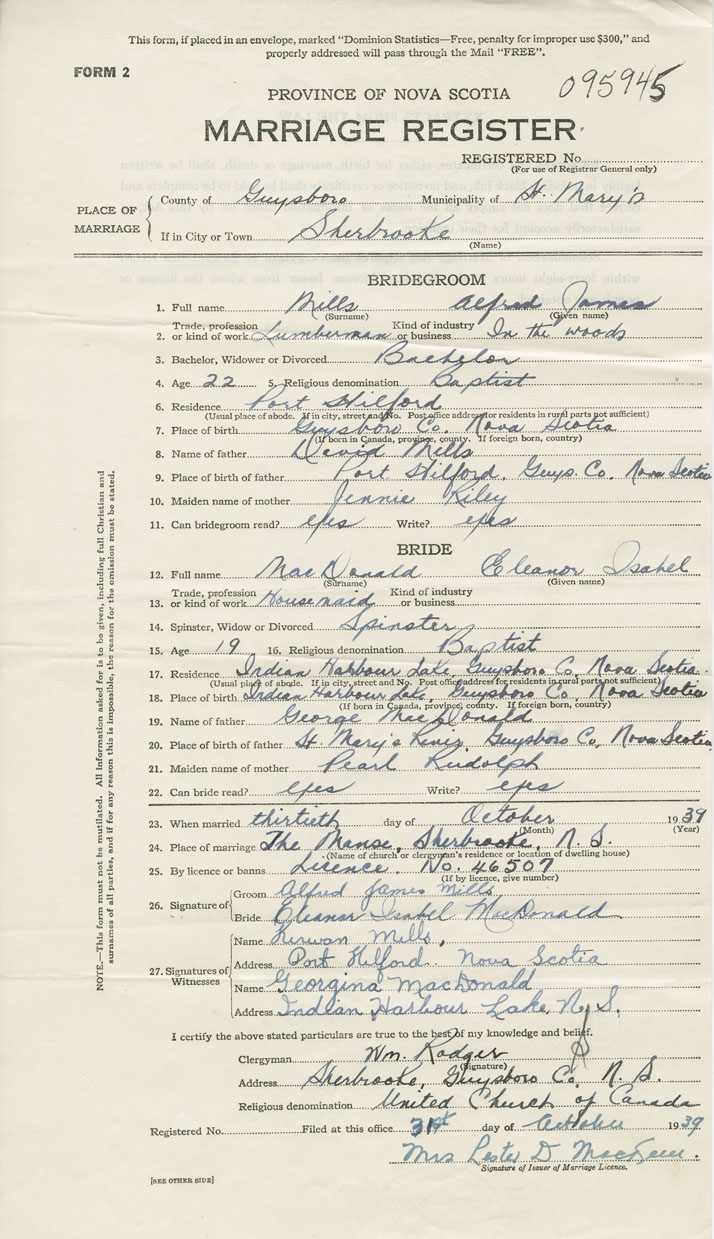 This form, if placed in an envelope, marked "Dominion Statistics—Free, penalty for improper use $300," and
properly addressed will pass through the Mail "FREE".
FORM 2
095945
PROVINCE OF NOVA SCOTIA
MARRIAGE REGISTER
REGISTERED No.
(For use of Registrar General only)
PLACE OF MARRIAGE
County of Guysboro Municipality of St. Mary's
If in City or Town Sherbrooke
(Name)
BRIDEGROOM
1. Full name Mills Alfred James
(Surname) (Given name)
2. Trade, profession or kind of work Lumberman Kind of industry or business In the woods
3. Bachelor, Widower or Divorced Bachelor
4. Age 22 5. Religious denomination Baptist
6. Residence Port Hilford
(Usual place of abode. If in city, street and No. Post office address for residents in rural parts not sufficient)
7. Place of birth Guysboro Co. Nova Scotia
(If born in Canada, province, county. If foreign born, country)
8. Name of father David Mills
9. Place of birth of father Port Hilford, Guys. Co. Nova Scotia
10. Maiden name of mother Jennie Riley
11. Can bridegroom read? yes Write? yes
BRIDE
12. Full name MacDonald Eleanor Isabel
(Surname) (Given name)
13. Trade, profession or kind of work Housemaid Kind of industry or business
14. Spinster, Widow or Divorced Spinster
15. Age 19 16. Religious denomination Baptist
17. Residence Indian Harbour Lake, Guysboro Co, Nova Scotia.
(Usual place of abode. If in city, street and No. Post office address for residents in rural parts not sufficient)
18. Place of birth Indian Harbour Lake, Guysboro Co, Nova Scotia
(If born in Canada, province, county. If foreign born, country)
19. Name of father George MacDonald
20. Place of birth of father St. Mary's River, Guysboro Co, Nova Scotia
21. Maiden name of mother Pearl Rudolph
22. Can bride read? yes Write? yes
23. When married thirtieth day of October 1939
(Month) (Year)
24. Place of marriage The Manse, Sherbrooke, N. S.
(Name of church or clergyman's residence or location of dwelling house)
25. By licence or banns Licence. No. 46507
(If by licence, give number)
26. Signature of
Groom Alfred James Mills
Bride Eleanor Isabel MacDonald
27. Signatures of Witnesses
Name Kirwan Mills,
Address Port Hilford. Nova Scotia
Name Georgina MacDonald
Address Indian Harbour Lake, N. S.
I certify the above stated particulars are true to the best of my knowledge and belief.
Clergyman Wm. Rodger
(Signature)
Address Sherbrooke, Guysboro Co, N. S.
Religious denomination United Church of Canada
Registered No. Filed at this office 31st day of October 1939
Mrs Lester D.
Signature of Issuer of Marriage Licence.
[SEE OTHER SIDE]
NOTE.—This form must not be mutilated. All information asked for is to be given, including full Christian and
surnames of all parties, and if for any reason this is impossible, the reason for the omission must be stated.